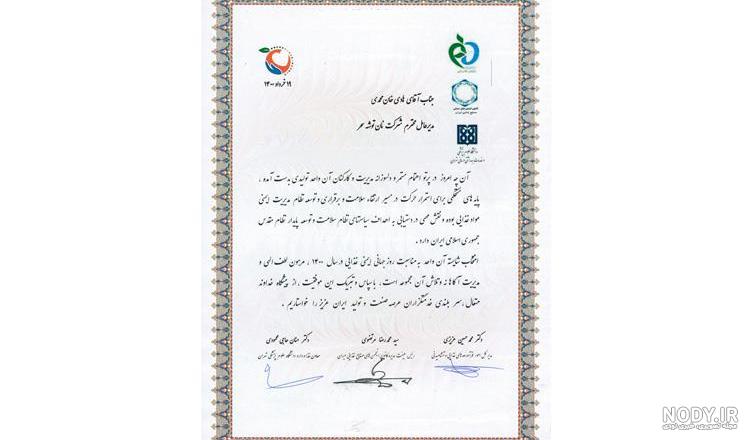 ۱۹ خرداد ۱۴۰۰
جناب آقای هادی خان محمدی
مدیرعامل محترم شرکت نان توشه سحر
آن چه امروز در پرتو اهتمام مستمر و دلسوزانه مدیریت و کارکنان آن واحد تولیدی بدست آمده ،
پایه های مستحکمی برای استمرار حرکت در مسیر ارتقاء سلامت و برقراری و توسعه نظام مدیریت ایمنی
مواد غذایی بوده و نقش مهمی در دستیابی به اهداف سیاستهای نظام سلامت و توسعه پایدار نظام مقدس
جمهوری اسلامی ایران دارد .
انتخاب شایسته آن واحد به مناسبت روز جهانی ایمنی غذایی در سال ۱۴۰۰ ، مرهون لطف الهی و
مدیریت آگاهانه و تلاش آن مجموعه است ، با سپاس و تبریک این موفقیت ، از پیشگاه خداوند
متعال ، سربلندی خدمتگزاران عرصه صنعت و تولید ایران عزیز را خواستاریم .
دکتر محمد حسین عزیزی
سید محمدرضا مرتضوی
دکتر حنان حاجی محمودی
NODY.IR